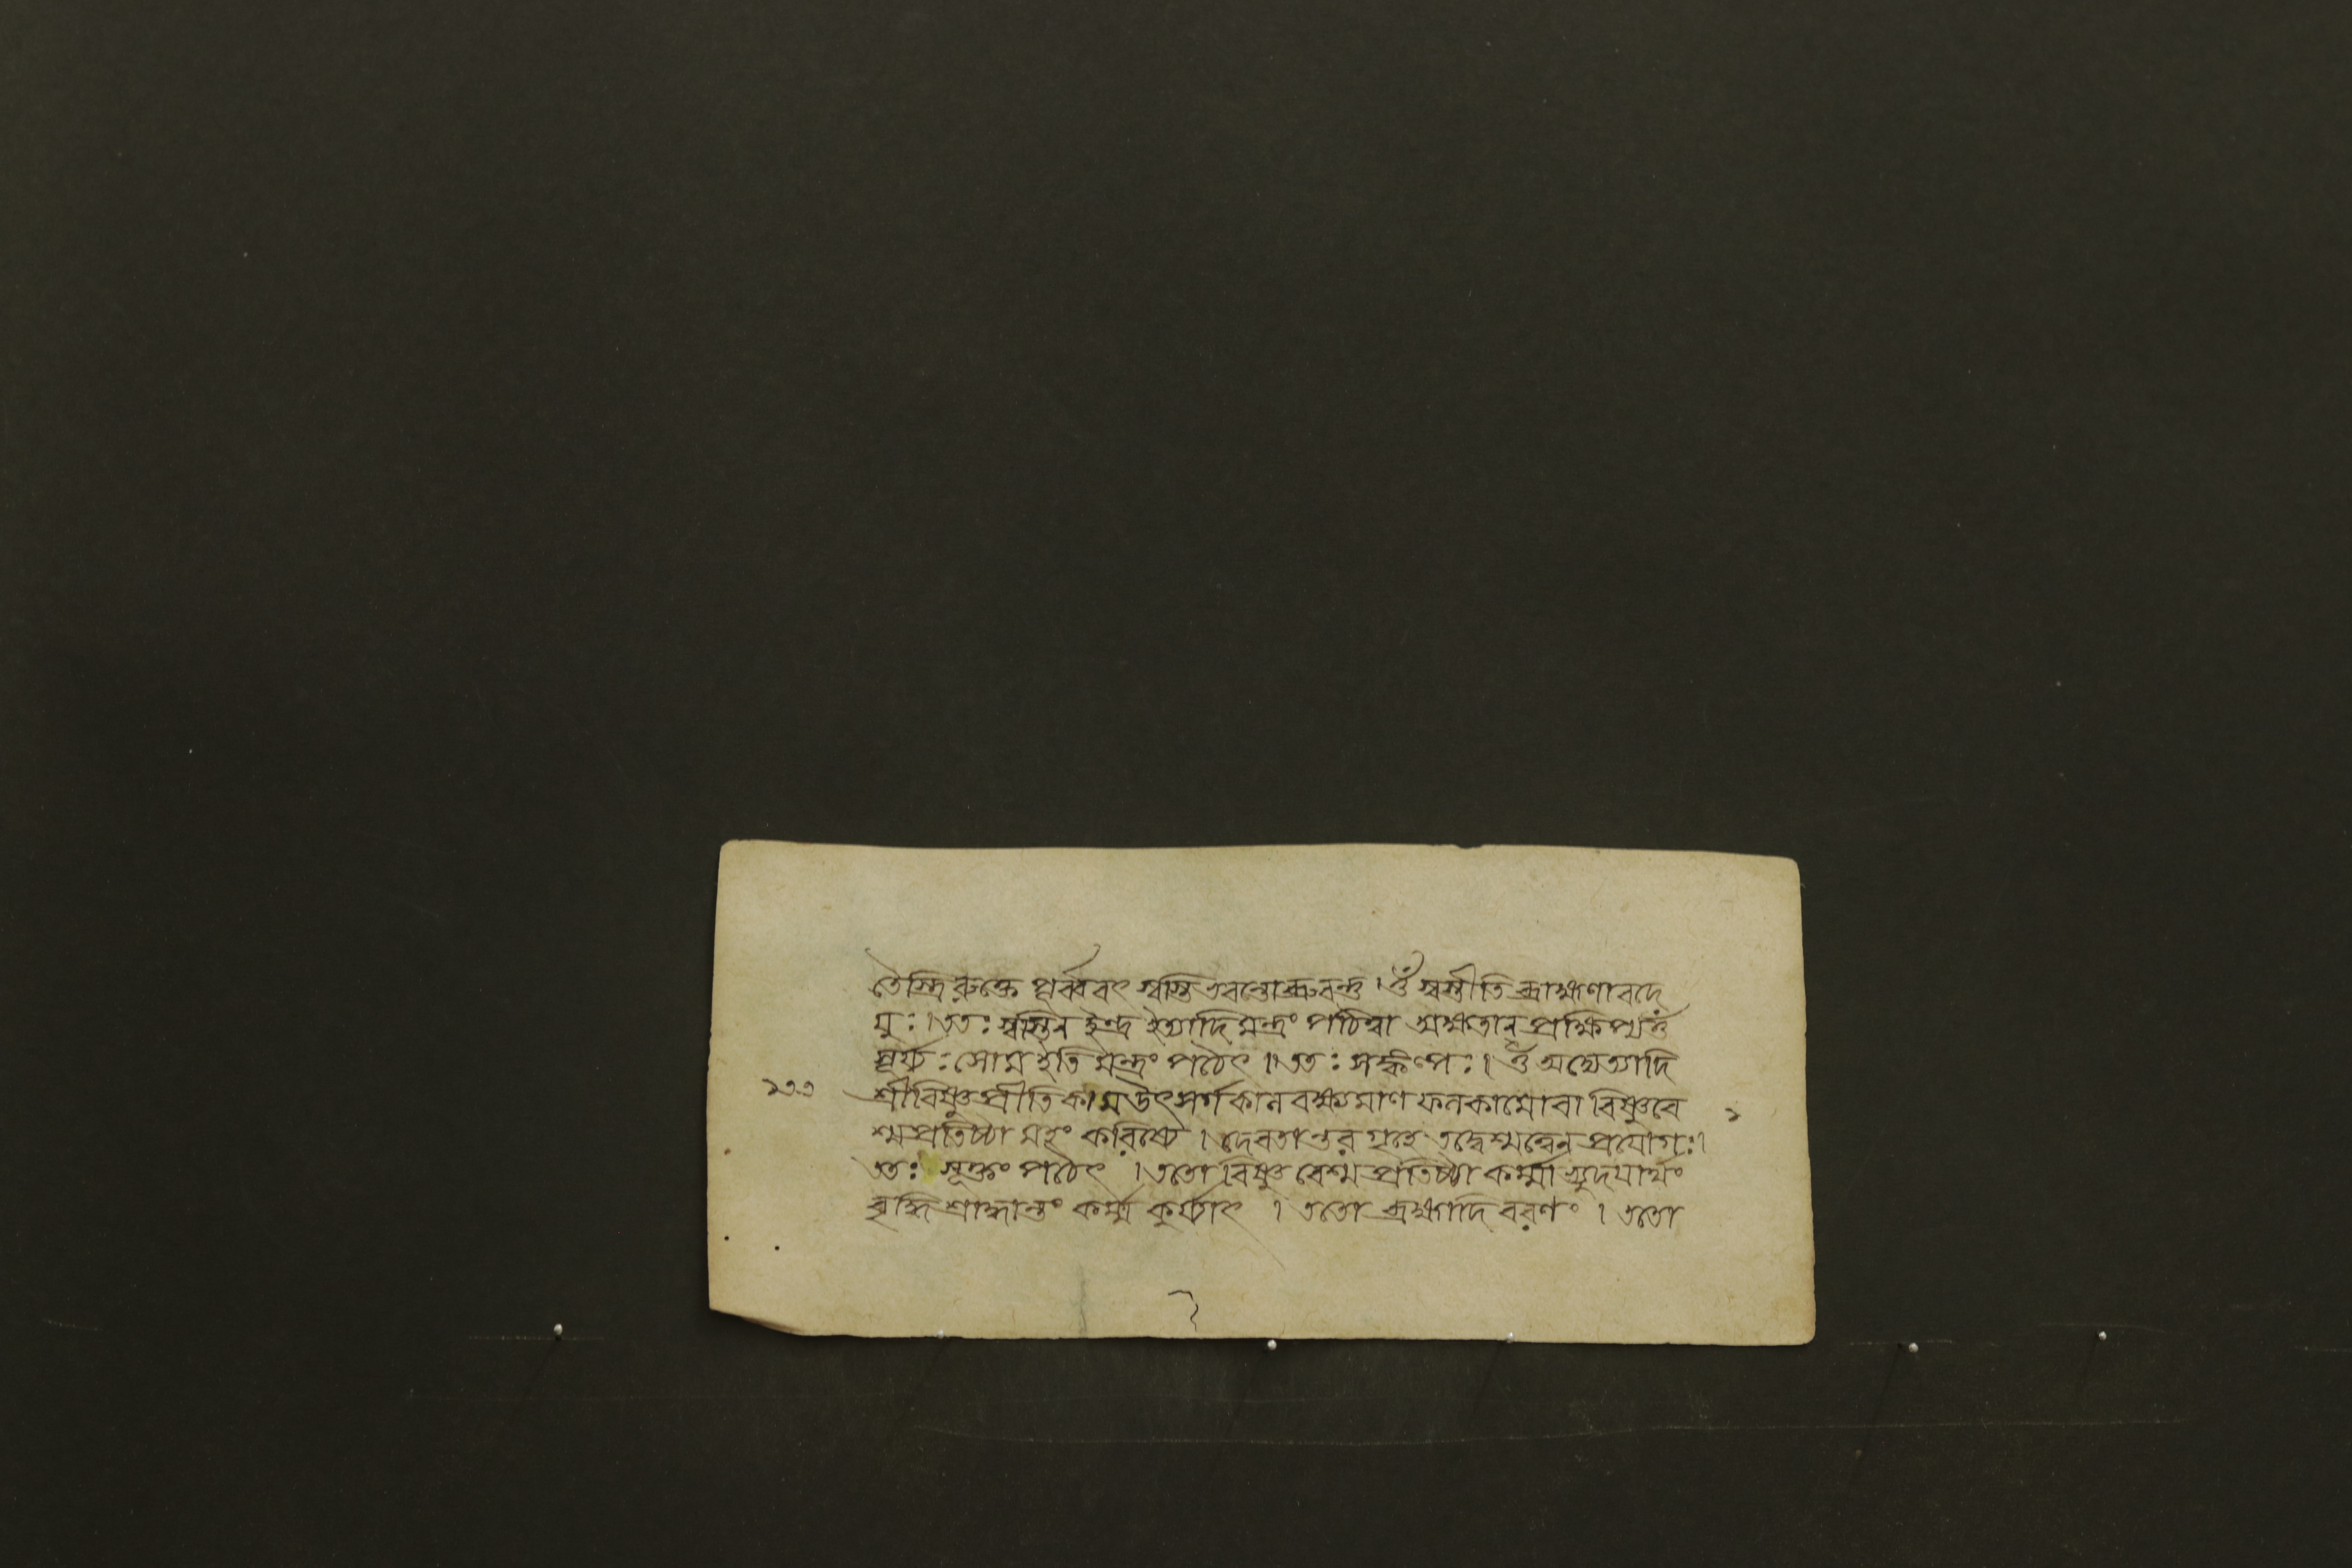 তৈস্ত্রিরুক্তে পূর্ব্ববৎ স্বস্তি ভবন্তো ব্রুবন্তু । ওঁ স্বস্তীতি ব্রাহ্মণা বদে
যুঃ । ততঃ স্বস্তিন ইন্দ্র ইত্যাদি মন্ত্রং পঠিত্বা অক্ষতান্ প্রক্ষিপ্য ওঁ
সূর্য্যঃ সোম ইতি মন্ত্রং পঠেৎ ॥ ততঃ সঙ্কল্পঃ । ওঁ অদ্যেত্যাদি
শ্রীবিষ্ণুপ্রীতিকাম উৎসর্গকাল বক্ষ্যমাণ ফলকামো বা বিষ্ণুবে
শ্মপ্রতিষ্ঠা মহং করিষ্যে । দেবতান্তর গৃহে তদ্বেশ্মত্বেন প্রযোগঃ ।
ততঃ সূক্তং পঠেৎ । ততো বিষ্ণু বেশ্ম প্রতিষ্ঠা কর্ম্মাভ্যুদযার্থং
বৃদ্ধি শ্রাদ্ধান্তং কর্ম্ম কুর্য্যাৎ । ততো ব্রহ্মাদি বরণং । ততো